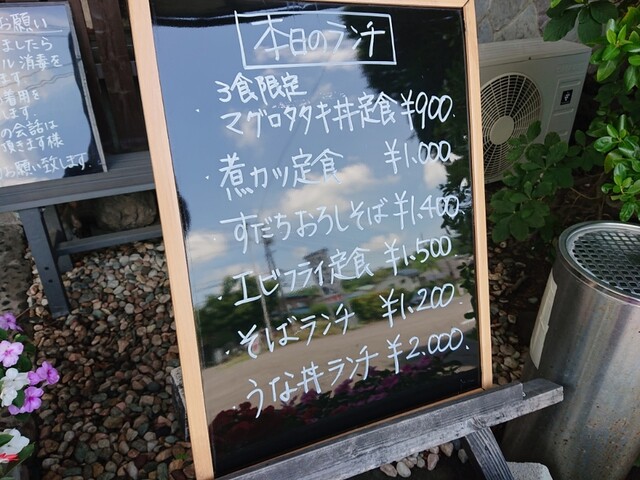 お願い
ましたら
ル消毒を
ます
着用を
ます.
の会話は
頂きます様
お願い致します
本日のランチ
3食限定
・マグロタタキ丼定食 ¥900
・煮カツ定食 ¥1,000
・すだちおろしそば ¥1,400
・エビフライ定食 ¥1,500
・そばランチ ¥1,200
・うな丼ランチ ¥2,000